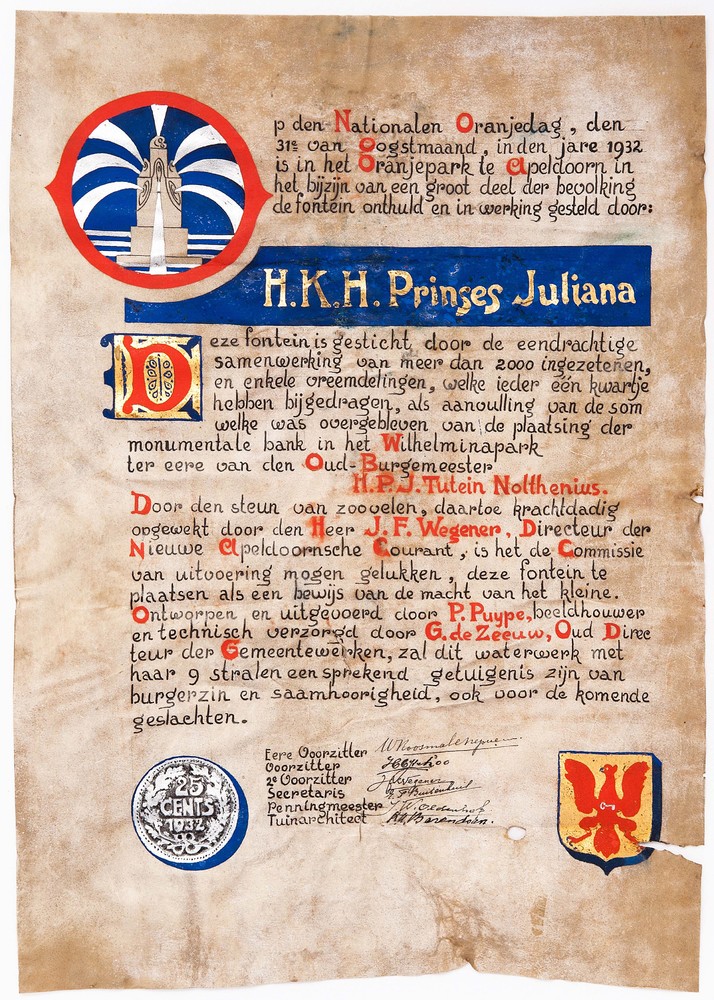 p den Nationalen Oranjedag, den
31e van Oogstmaand, in den jare 1932
is in het Oranjepark te Apeldoorn in
het bijzijn van een groot deel der bevolking
de fontein onthuld en in werking gesteld door:
H.K.H. Prinses Juliana
Deze fontein is gesticht door de eendrachtige
samenwerking van meer dan 2000 ingezetenen,
en enkele vreemdelingen, welke ieder één kwartje
hebben bijgedragen, als aanvulling van de som
welke was overgebleven van de plaatsing der
monumentale bank in het Wilhelminapark
ter eere van den Oud-Burgemeester
H.P.J. Tutein Nolthenius.
Door den steun van zoovelen, daartoe krachtdadig
opgewekt door den Heer J.F. Wegener, Directeur der
Nieuwe Apeldoornsche Courant, is het de Commissie
van uitvoering mogen gelukken, deze fontein te
plaatsen als een bewijs van de macht van het kleine.
Ontworpen en uitgevoerd door P. Puype, beeldhouwer
en technisch verzorgd door G. de Zeeuw, Oud Direc
teur der Gemeentewerken, zal dit waterwerk met
haar 9 stralen een sprekend getuigenis zijn van
burgerzin en saamhoorigheid, ook voor de komende
geslachten.
Eere Voorzitter
Voorzitter
2e Voorzitter Wegener
Secretaris
Penningmeester
Tuinarchitect
25
CENTS
1932